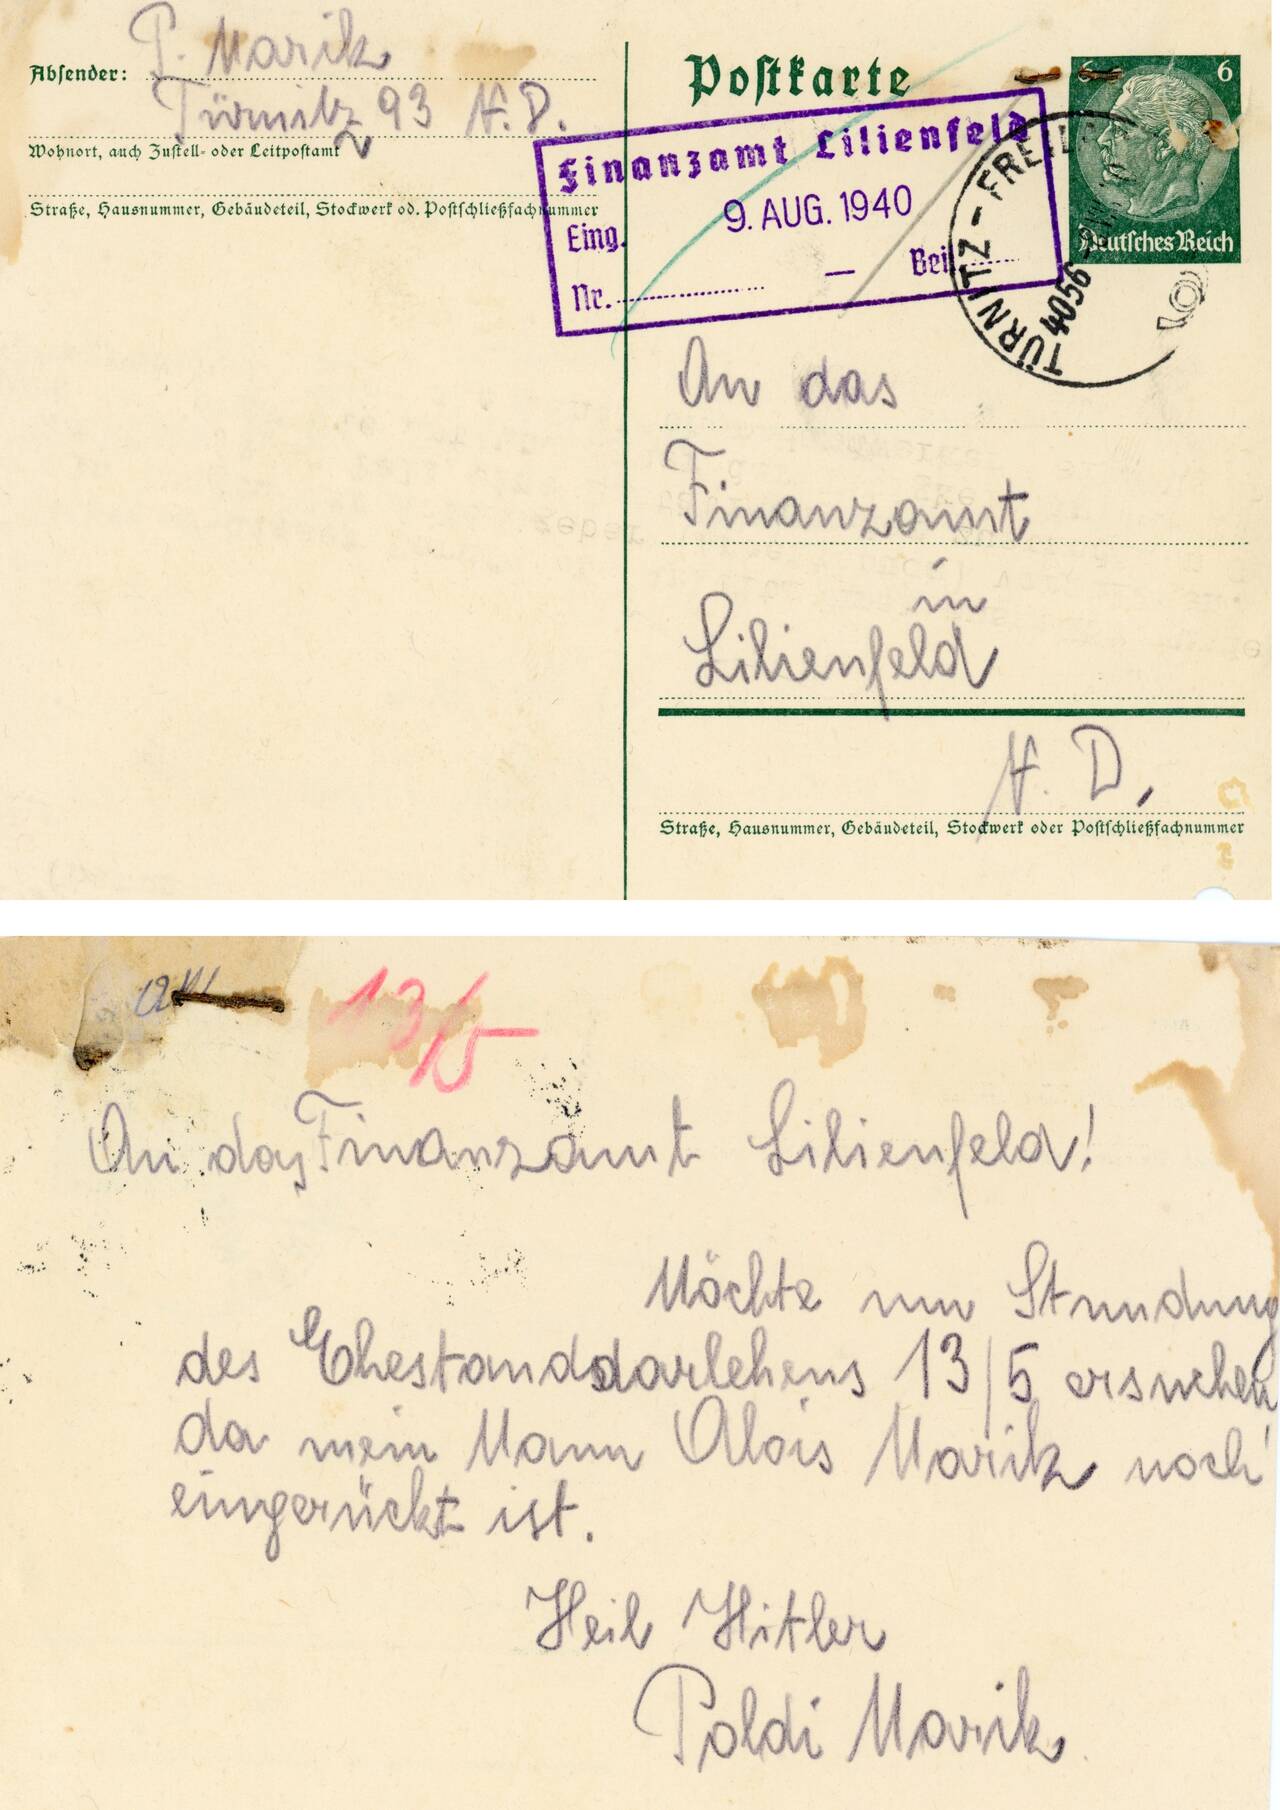 P. Marik
Absender:
Türnitz 93 N.D.
Wohnort, auch Zustell- oder Leitpostamt
Straße, Hausnummer, Gebäudeteil, Stockwerk od. Postschließfachnummer
Postkarte
6 6
Deutsches Reich
Finanzamt Lilienfeld
Eing. 9. AUG. 1940
Nr. — Beil.
TÜRNITZ - FREIL
4056
An das
Finanzamt
in
Lilienfeld
N. D.
Straße, Hausnummer, Gebäudeteil, Stockwerk oder Postschließfachnummer
13/5
An das Finanzamt Lilienfeld!
Möchte um Stundung
des Ehestanddarlehens 13/5 ersuchen
da mein Mann Alois Marik noch
eingerückt ist.
Heil Hitler
Poldi Marik